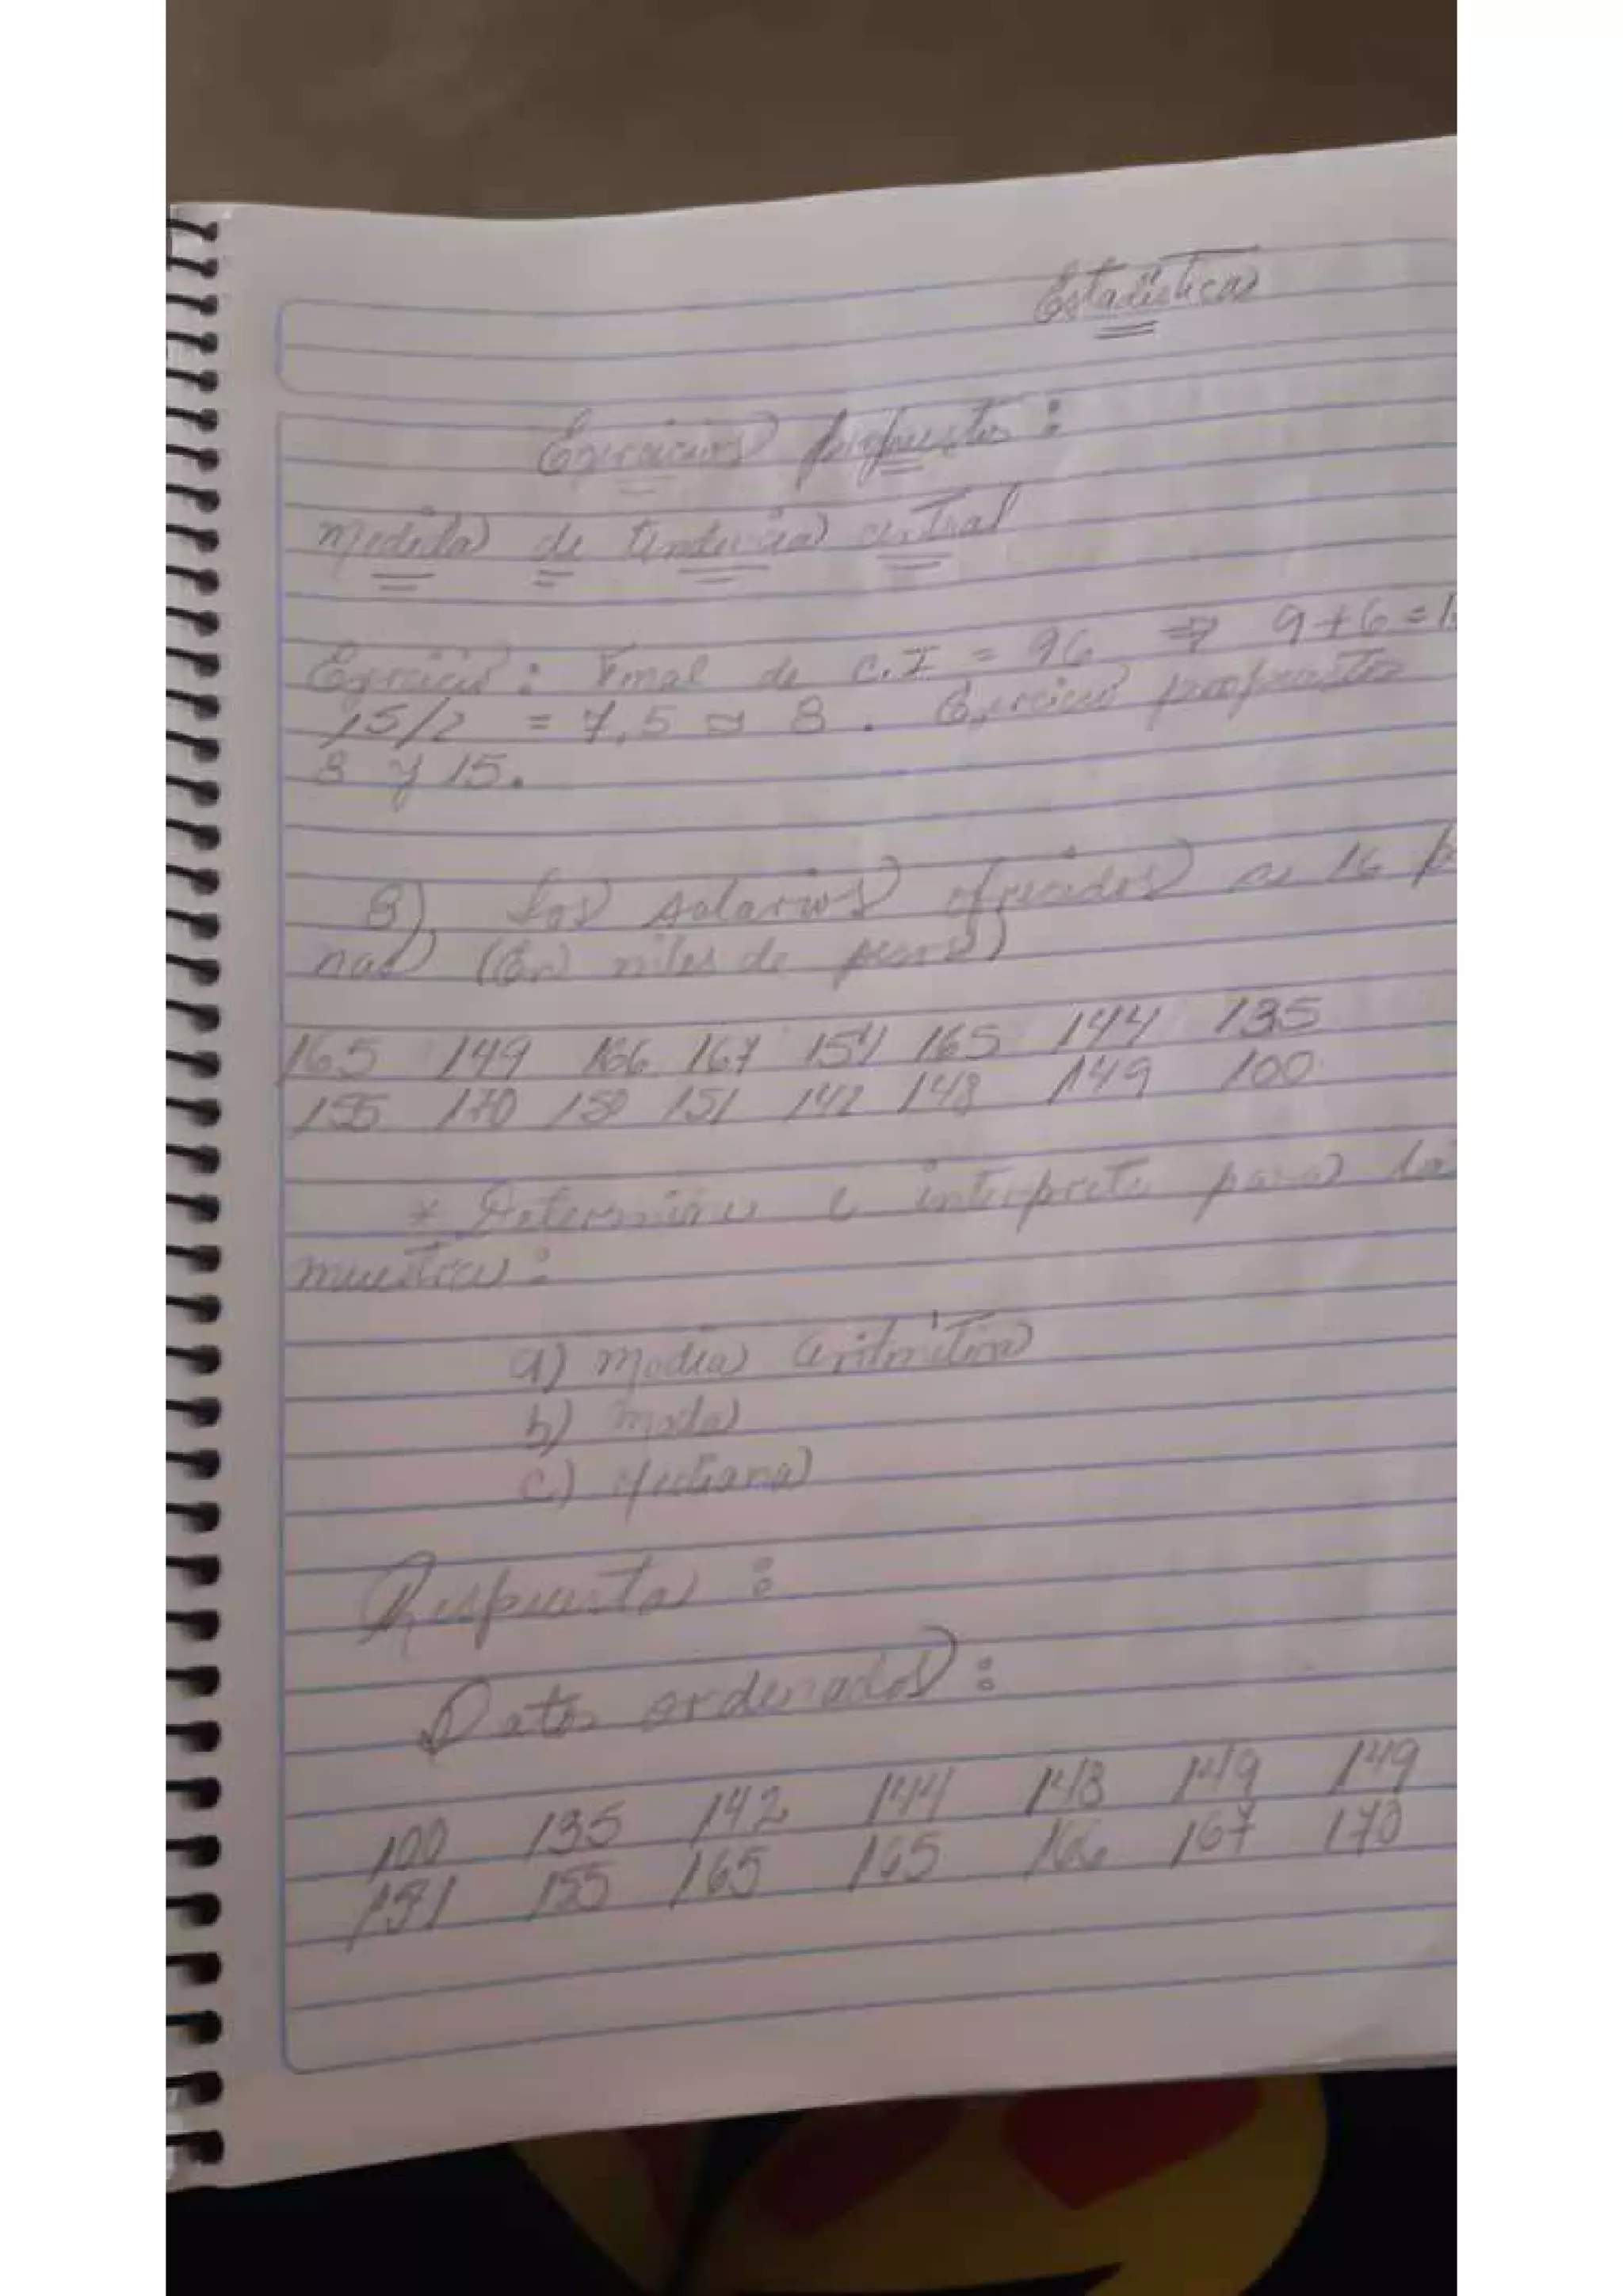 Estadística
Ejercicios propuestos:
Medida de tendencia central
Ejercicio: Final de C.I = 96 ⇒ 9+6=1
15/2 = 7,5 ≈ 8 . Ejercicios propuestos
8 y 15.
8). Los salarios ofrecidos a 16 pe
nas (En miles de pesos)
165 149 166 167 154 165 144 135
155 170 150 151 142 148 149 100
* Determine e interprete para la
muestra:
a) Media aritmética
b) Moda
c) Mediana
Respuesta:
Datos ordenados:
100 135 142 144 148 149 149
151 155 165 165 166 167 170